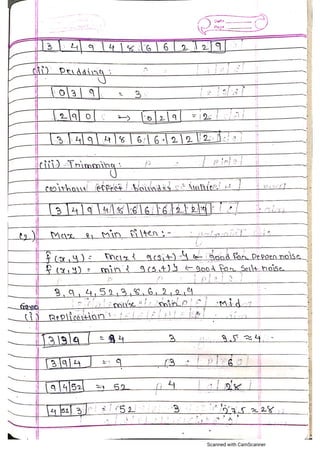 3 4 9 4 8 6 6 2 2 9
(ii) Padding:
0 3 9 = 3
2 9 0 → 0 2 9 = 2
3 4 9 4 8 6 6 2 2 2
(iii) Trimming:
(without effect boundary values)
3 4 9 4 8 6 6 2 2 9
Q2) Max & Min filter:-
f(x,y) = max{ g(s,t) } ← Good for Pepper noise
f(x,y) = min{ g(s,t) } ← Good for Salt noise
3, 9, 4, 52, 3, 8, 6, 2, 2, 9
max min Mid
(i) Replication:
3 3 9 = 4 3 3.5 ≈ 4
3 9 4 = 9 3 6
9 4 52 = 52 4 28
4 52 3 = 52 3 27.5 ≈ 28
Scanned with CamScanner